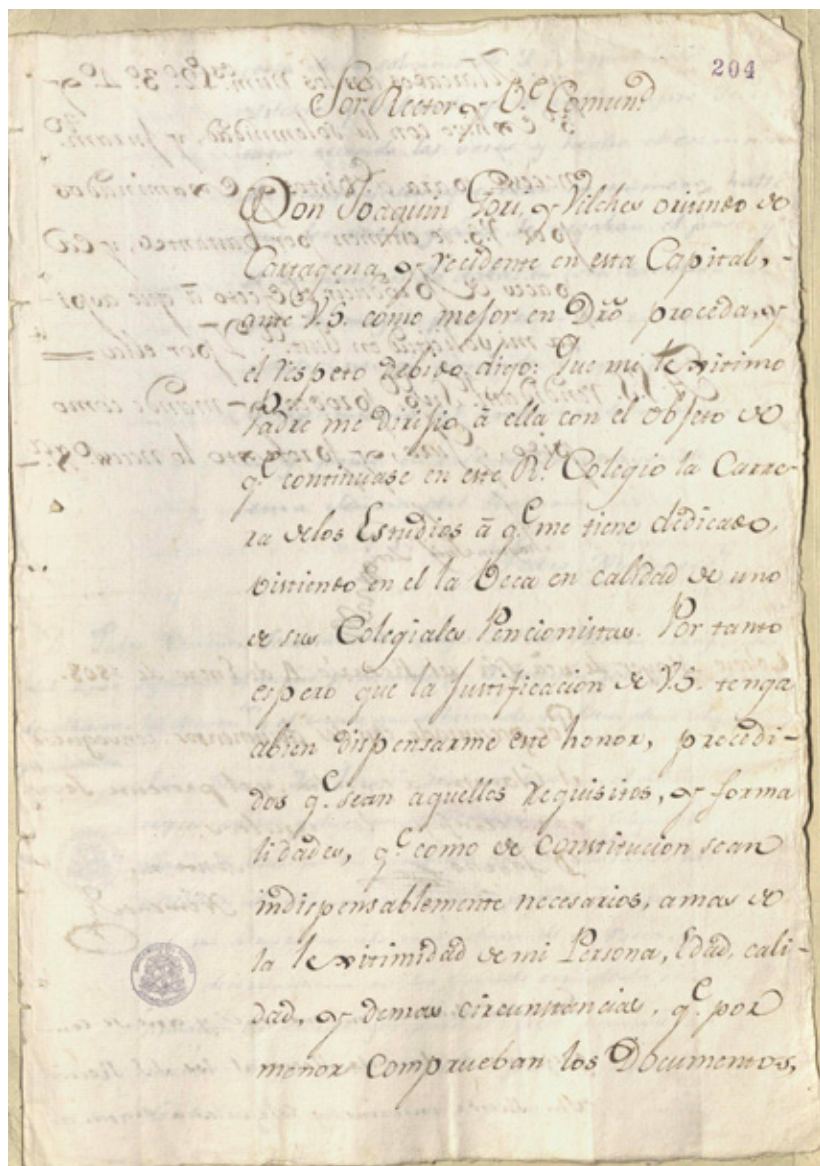 204
Sor. Rector y Ve. Comund.
Don Joaquin Gori, y Vilches oriundo de
Cartagena, y recidente en esta Capital,-
ante V.S. como mejor en Dro. proceda, y
el respeto debido digo: Que mi lexitimo
Padre me dirijio â ella con el objeto de
qe. continuase en este Rl. Colegio la Carre-
ra de los Estudios â qe. me tiene dedicado,
vistiendo en el la Beca en calidad de uno
de sus Colegiales Pencionistas. Por tanto
espero que la justificacion de V.S. tenga
abien dispensarme este honor, precedi-
dos qe. sean aquellos requisitos, y forma
lidades, qe. como de constitucion sean
indispensablemente necesarios, amas de
la lexitimidad de mi Persona, Edad, cali-
dad, y demas circunstancias, qe. por
menor comprueban los Documentos,